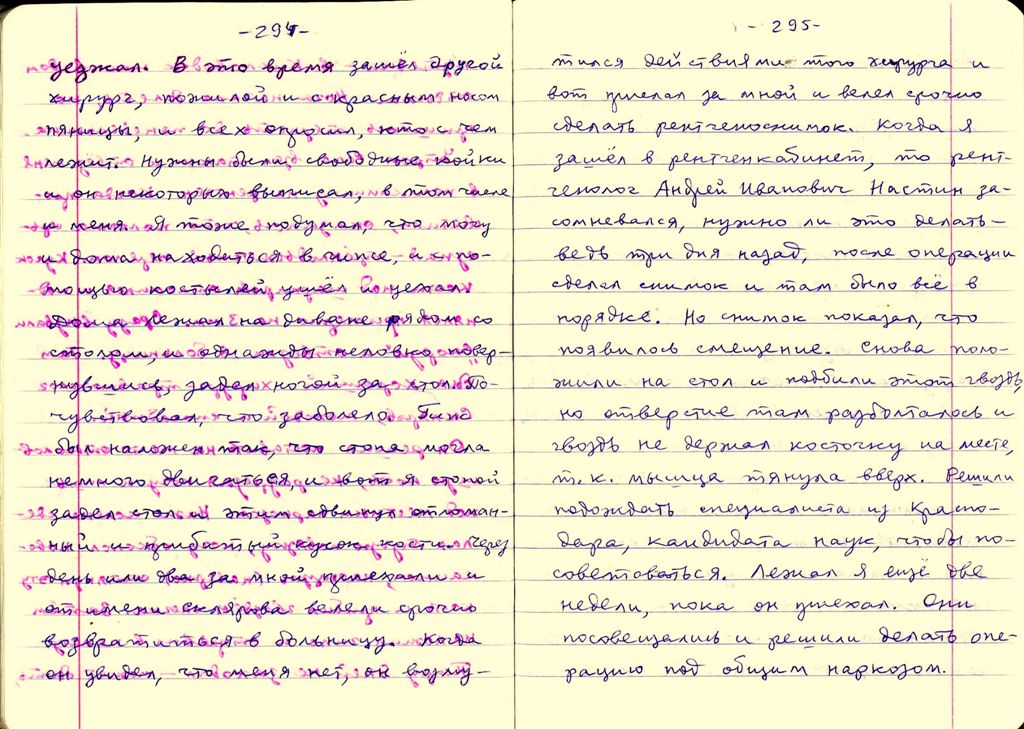 -294-
уезжал. В это время зашёл другой
хирург, пожилой и с красным носом
пяницы, и всех опросил, кто с чем
лежит. Нужны были свободные койки
и он некоторых выписал, в том числе
и меня. Я тоже подумал, что могу
и дома находиться в гипсе, и с по-
мощью костылей ушёл и уехал.
Дома лежал на диване рядом со
столом, и однажды неловко повер-
нувшись, задел ногой за стол. По-
чувствовал, что заболело. Гипс
был наложен так, что стопа могла
немного двигаться, и вот я стопой
задел стол и этим сдвинул отломан-
ный и прибитый кусок кости. Через
день или два за мной приехали и
от имени Склярова велели срочно
возвратиться в больницу. Когда
он увидел, что меня нет, он возму-
-295-
тился действиями того хирурга и
вот приехал за мной и велел срочно
сделать рентгеноснимок. Когда я
зашёл в рентгенкабинет, то рент-
генолог Андрей Иванович Настин за-
сомневался, нужно ли это делать -
ведь три дня назад, после операции
сделал снимок и там было всё в
порядке. Но снимок показал, что
появилось смещение. Снова поло-
жили на стол и подбили этот гвоздь,
но отверстие там разболталось и
гвоздь не держал косточку на месте,
т.к. мышца тянула вверх. Решили
подождать специалиста из Красно-
дара, кандидата наук, чтобы по-
советоваться. Лежал я ещё две
недели, пока он приехал. Они
посовещались и решили делать опе-
рацию под общим наркозом.